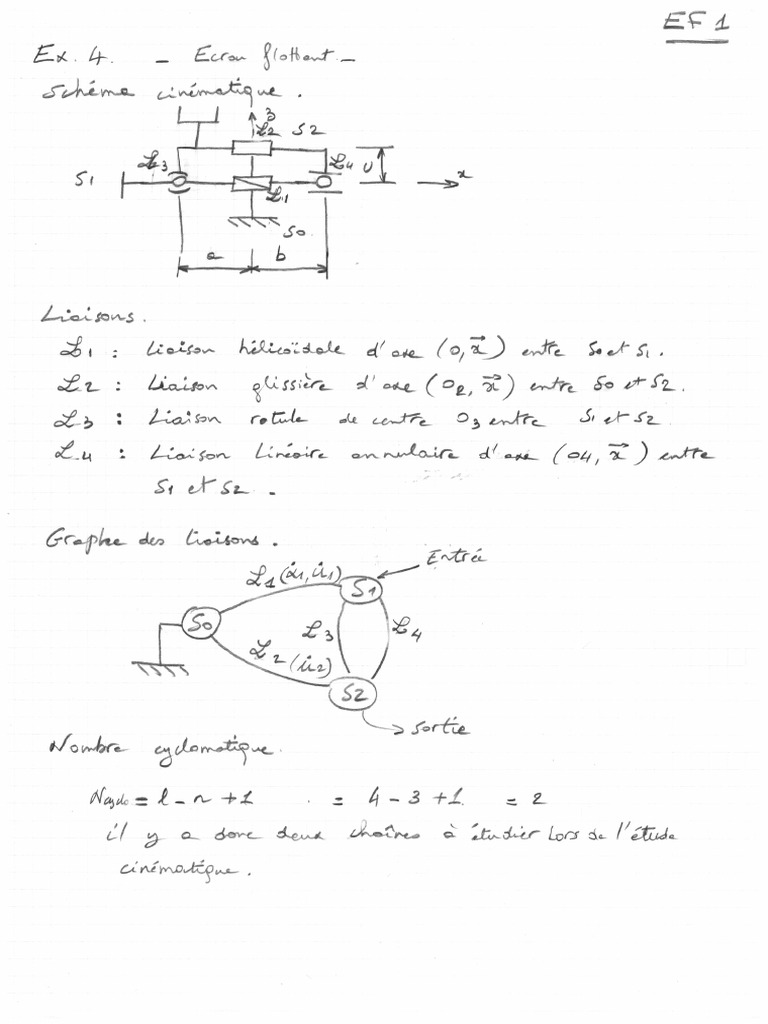 EF 1
Ex. 4. - Ecrou flottant -
Schéma cinématique.
z
L2 S2
L3
L4
U
S1
L1
x
S0
a
b
Liaisons.
L1 : Liaison hélicoïdale d'axe (O, x⃗) entre S0 et S1.
L2 : Liaison glissière d'axe (O2, x⃗) entre S0 et S2.
L3 : Liaison rotule de centre O3 entre S1 et S2
L4 : Liaison Linéaire annulaire d'axe (O4, x⃗) entre
S1 et S2.
Graphe des liaisons.
Entrée
L1 (α̇1, u̇1)
S1
S0
L3
L4
L2 (u̇2)
S2
Sortie
Nombre cyclomatique.
Ncyclo = l - n + 1 = 4 - 3 + 1 = 2
il y a donc deux chaînes à étudier Lors de l'étude
cinématique.